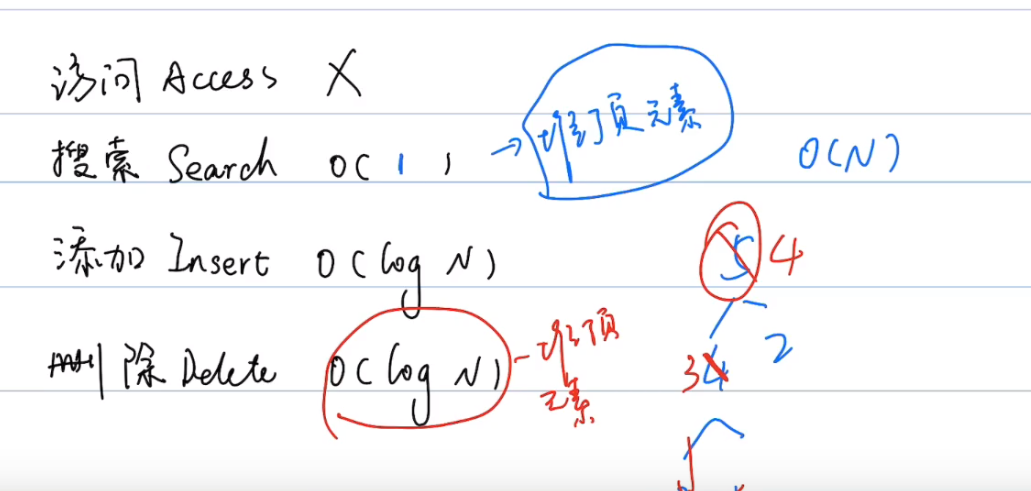 访问 Access X
搜索 Search O(1) → 堆顶元素 O(N)
添加 Insert O(log N)
删除 Delete O(log N) - 堆顶
元素
5 4
3 4 2